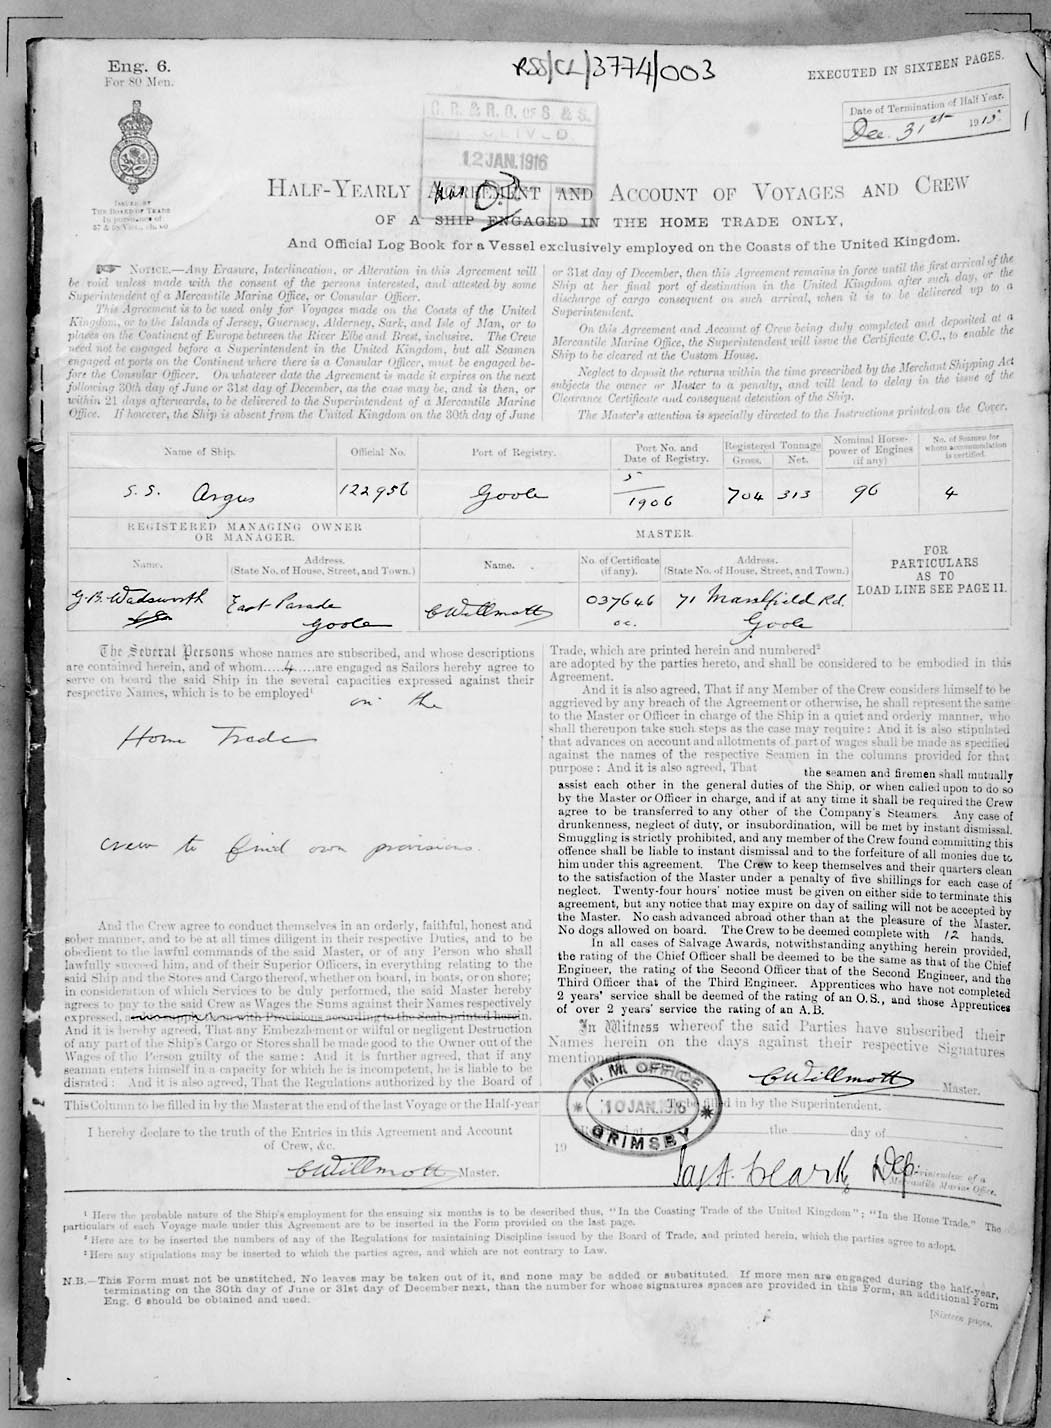 Eng. 6.
For 80 Men.
RSS/CL/3774/003
EXECUTED IN SIXTEEN PAGES.
Date of Termination of Half Year.
Dec. 31st 1915
C. R. & R. G. OF S. & S.
RECEIVED
12 JAN. 1916
ISSUED BY
THE BOARD OF TRADE
In pursuance of
57 & 58 Vict., ch. 60
HALF-YEARLY AGREEMENT AND ACCOUNT OF VOYAGES AND CREW
OF A SHIP ENGAGED IN THE HOME TRADE ONLY,
And Official Log Book for a Vessel exclusively employed on the Coasts of the United Kingdom.
NOTICE.—Any Erasure, Interlineation, or Alteration in this Agreement will
be void unless made with the consent of the persons interested, and attested by some
Superintendent of a Mercantile Marine Office, or Consular Officer.
This Agreement is to be used only for Voyages made on the Coasts of the United
Kingdom, or to the Islands of Jersey, Guernsey, Alderney, Sark, and Isle of Man, or to
places on the Continent of Europe between the River Elbe and Brest, inclusive. The Crew
need not be engaged before a Superintendent in the United Kingdom, but all Seamen
engaged at ports on the Continent where there is a Consular Officer, must be engaged be-
fore the Consular Officer. On whatever date the Agreement is made it expires on the next
following 30th day of June or 31st day of December, as the case may be, and is then, or
within 21 days afterwards, to be delivered to the Superintendent of a Mercantile Marine
Office. If however, the Ship is absent from the United Kingdom on the 30th day of June
or 31st day of December, then this Agreement remains in force until the first arrival of the
Ship at her final port of destination in the United Kingdom after such day, or the
discharge of cargo consequent on such arrival, when it is to be delivered up to a
Superintendent.
On this Agreement and Account of Crew being duly completed and deposited at a
Mercantile Marine Office, the Superintendent will issue the Certificate C.C., to enable the
Ship to be cleared at the Custom House.
Neglect to deposit the returns within the time prescribed by the Merchant Shipping Act
subjects the owner or Master to a penalty, and will lead to delay in the issue of the
Clearance Certificate and consequent detention of the Ship.
The Master's attention is specially directed to the Instructions printed on the Cover.
Name of Ship. Official No. Port of Registry. Port No. and Date of Registry. Registered Tonnage Gross. Net. Nominal Horse-power of Engines (if any) No. of Seamen for whom accommodation is certified.
S.S. Argus 122956 Goole 5/1906 704 313 96 4
REGISTERED MANAGING OWNER
OR MANAGER.
MASTER.
FOR
PARTICULARS
AS TO
LOAD LINE SEE PAGE 11.
Name. Address. (State No. of House, Street, and Town.) Name. No. of Certificate (if any). Address. (State No. of House, Street, and Town.)
G. B. Wadsworth East Parade Goole C Willmott 037646 o.c. 71 Marshfield Rd. Goole
The Several Persons whose names are subscribed, and whose descriptions
are contained herein, and of whom.....4.....are engaged as Sailors hereby agree to
serve on board the said Ship in the several capacities expressed against their
respective Names, which is to be employed¹ on the
Home Trade
Crew to find own provisions.
And the Crew agree to conduct themselves in an orderly, faithful, honest and
sober manner, and to be at all times diligent in their respective Duties, and to be
obedient to the lawful commands of the said Master, or of any Person who shall
lawfully succeed him, and of their Superior Officers, in everything relating to the
said Ship and the Stores and Cargo thereof, whether on board, in boats, or on shore;
in consideration of which Services to be duly performed, the said Master hereby
agrees to pay to the said Crew as Wages the Sums against their Names respectively
expressed, and to supply them with Provisions according to the Scale printed herein.
And it is hereby agreed, That any Embezzlement or wilful or negligent Destruction
of any part of the Ship's Cargo or Stores shall be made good to the Owner out of the
Wages of the Person guilty of the same: And it is further agreed, that if any
seaman enters himself in a capacity for which he is incompetent, he is liable to be
disrated: And it is also agreed, That the Regulations authorized by the Board of
Trade, which are printed herein and numbered²
are adopted by the parties hereto, and shall be considered to be embodied in this
Agreement.
And it is also agreed, That if any Member of the Crew considers himself to be
aggrieved by any breach of the Agreement or otherwise, he shall represent the same
to the Master or Officer in charge of the Ship in a quiet and orderly manner, who
shall thereupon take such steps as the case may require: And it is also stipulated
that advances on account and allotments of part of wages shall be made as specified
against the names of the respective Seamen in the columns provided for that
purpose: And it is also agreed, That the seamen and firemen shall mutually
assist each other in the general duties of the Ship, or when called upon to do so
by the Master or Officer in charge, and if at any time it shall be required the Crew
agree to be transferred to any other of the Company's Steamers. Any case of
drunkenness, neglect of duty, or insubordination, will be met by instant dismissal.
Smuggling is strictly prohibited, and any member of the Crew found committing this
offence shall be liable to instant dismissal and to the forfeiture of all monies due to
him under this agreement. The Crew to keep themselves and their quarters clean
to the satisfaction of the Master under a penalty of five shillings for each case of
neglect. Twenty-four hours' notice must be given on either side to terminate this
agreement, but any notice that may expire on day of sailing will not be accepted by
the Master. No cash advanced abroad other than at the pleasure of the Master.
No dogs allowed on board. The Crew to be deemed complete with 12 hands.
In all cases of Salvage Awards, notwithstanding anything herein provided,
the rating of the Chief Officer shall be deemed to be the same as that of the Chief
Engineer, the rating of the Second Officer that of the Second Engineer, and the
Third Officer that of the Third Engineer. Apprentices who have not completed
2 years' service shall be deemed of the rating of an O.S., and those Apprentices
of over 2 years' service the rating of an A.B.
In Witness whereof the said Parties have subscribed their
Names herein on the days against their respective Signatures
mentioned.
C Willmott Master.
This Column to be filled in by the Master at the end of the last Voyage or the Half-year
I hereby declare to the truth of the Entries in this Agreement and Account
of Crew, &c.
C Willmott Master.
M. M. OFFICE
10 JAN. 1916
GRIMSBY
To be filled in by the Superintendent.
at the day of
19
Dep. Superintendent of a
Mercantile Marine Office.
¹ Here the probable nature of the Ship's employment for the ensuing six months is to be described thus, "In the Coasting Trade of the United Kingdom"; "In the Home Trade." The
particulars of each Voyage made under this Agreement are to be inserted in the Form provided on the last page.
² Here are to be inserted the numbers of any of the Regulations for maintaining Discipline issued by the Board of Trade, and printed herein, which the parties agree to adopt.
³ Here any stipulations may be inserted to which the parties agree, and which are not contrary to Law.
N.B.—This Form must not be unstitched. No leaves may be taken out of it, and none may be added or substituted. If more men are engaged during the half-year,
terminating on the 30th day of June or 31st day of December next, than the number for whose signatures spaces are provided in this Form, an additional Form
Eng. 6 should be obtained and used.
[Sixteen pages.